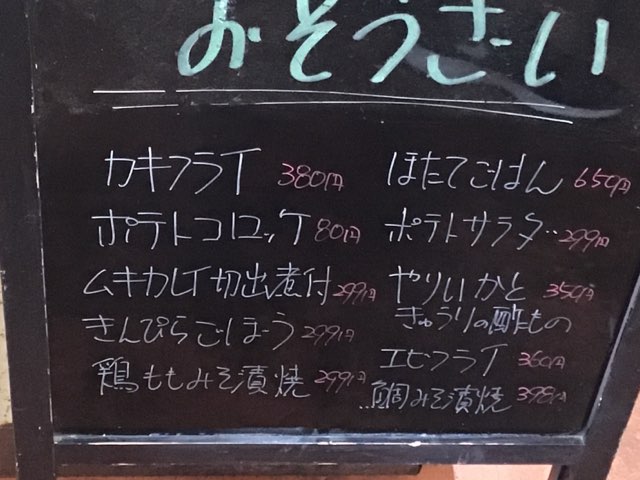 おそうざい
カキフライ 380円
ポテトコロッケ 80円
ムキカレイ切出煮付 299円
きんぴらごぼう 299円
鶏ももみそ漬焼 299円
ほたてごはん 650円
ポテトサラダ 299円
やりいかと 350円
きゅうりの酢もの
エビフライ 360円
鯛みそ漬焼 398円